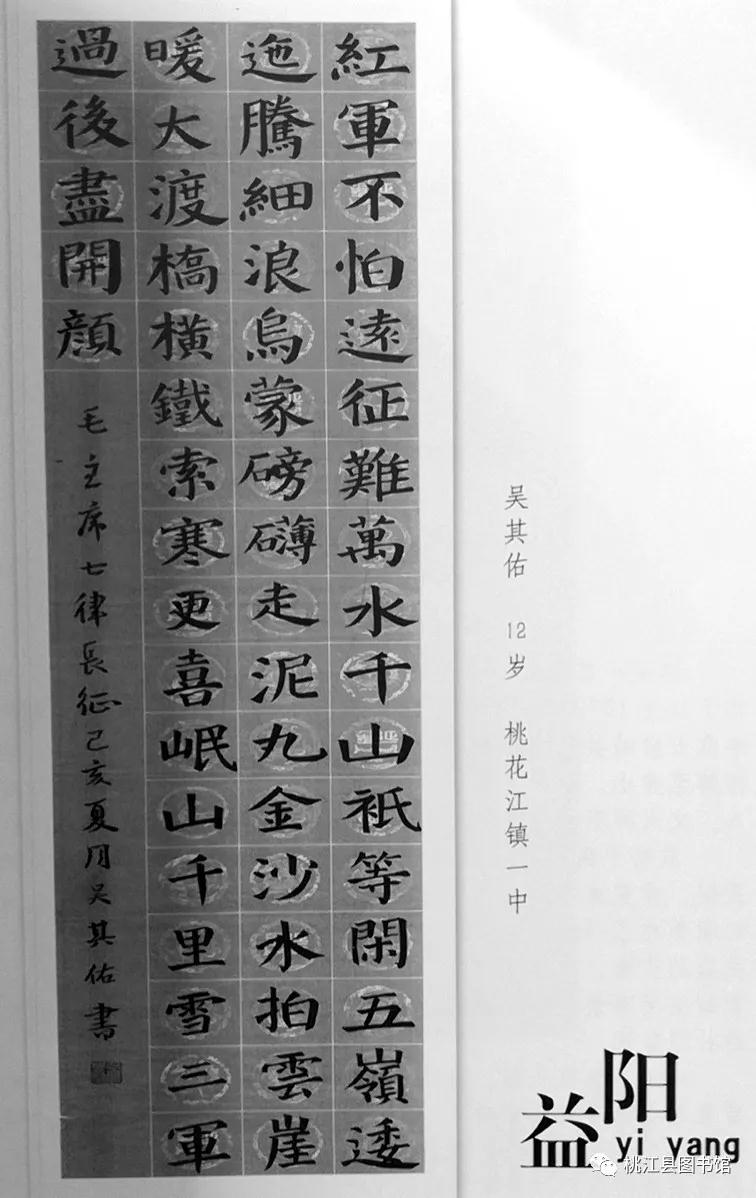 紅軍不怕遠征難萬水千山祇等閑五嶺逶
迤騰細浪烏蒙磅礴走泥九金沙水拍雲崖
暖大渡橋橫鐵索寒更喜岷山千里雪三軍
過後盡開顏
毛主席七律長征己亥夏月吴其佑書
吴其佑 12岁 桃花江镇一中
益阳
yi yang
桃江县图书馆